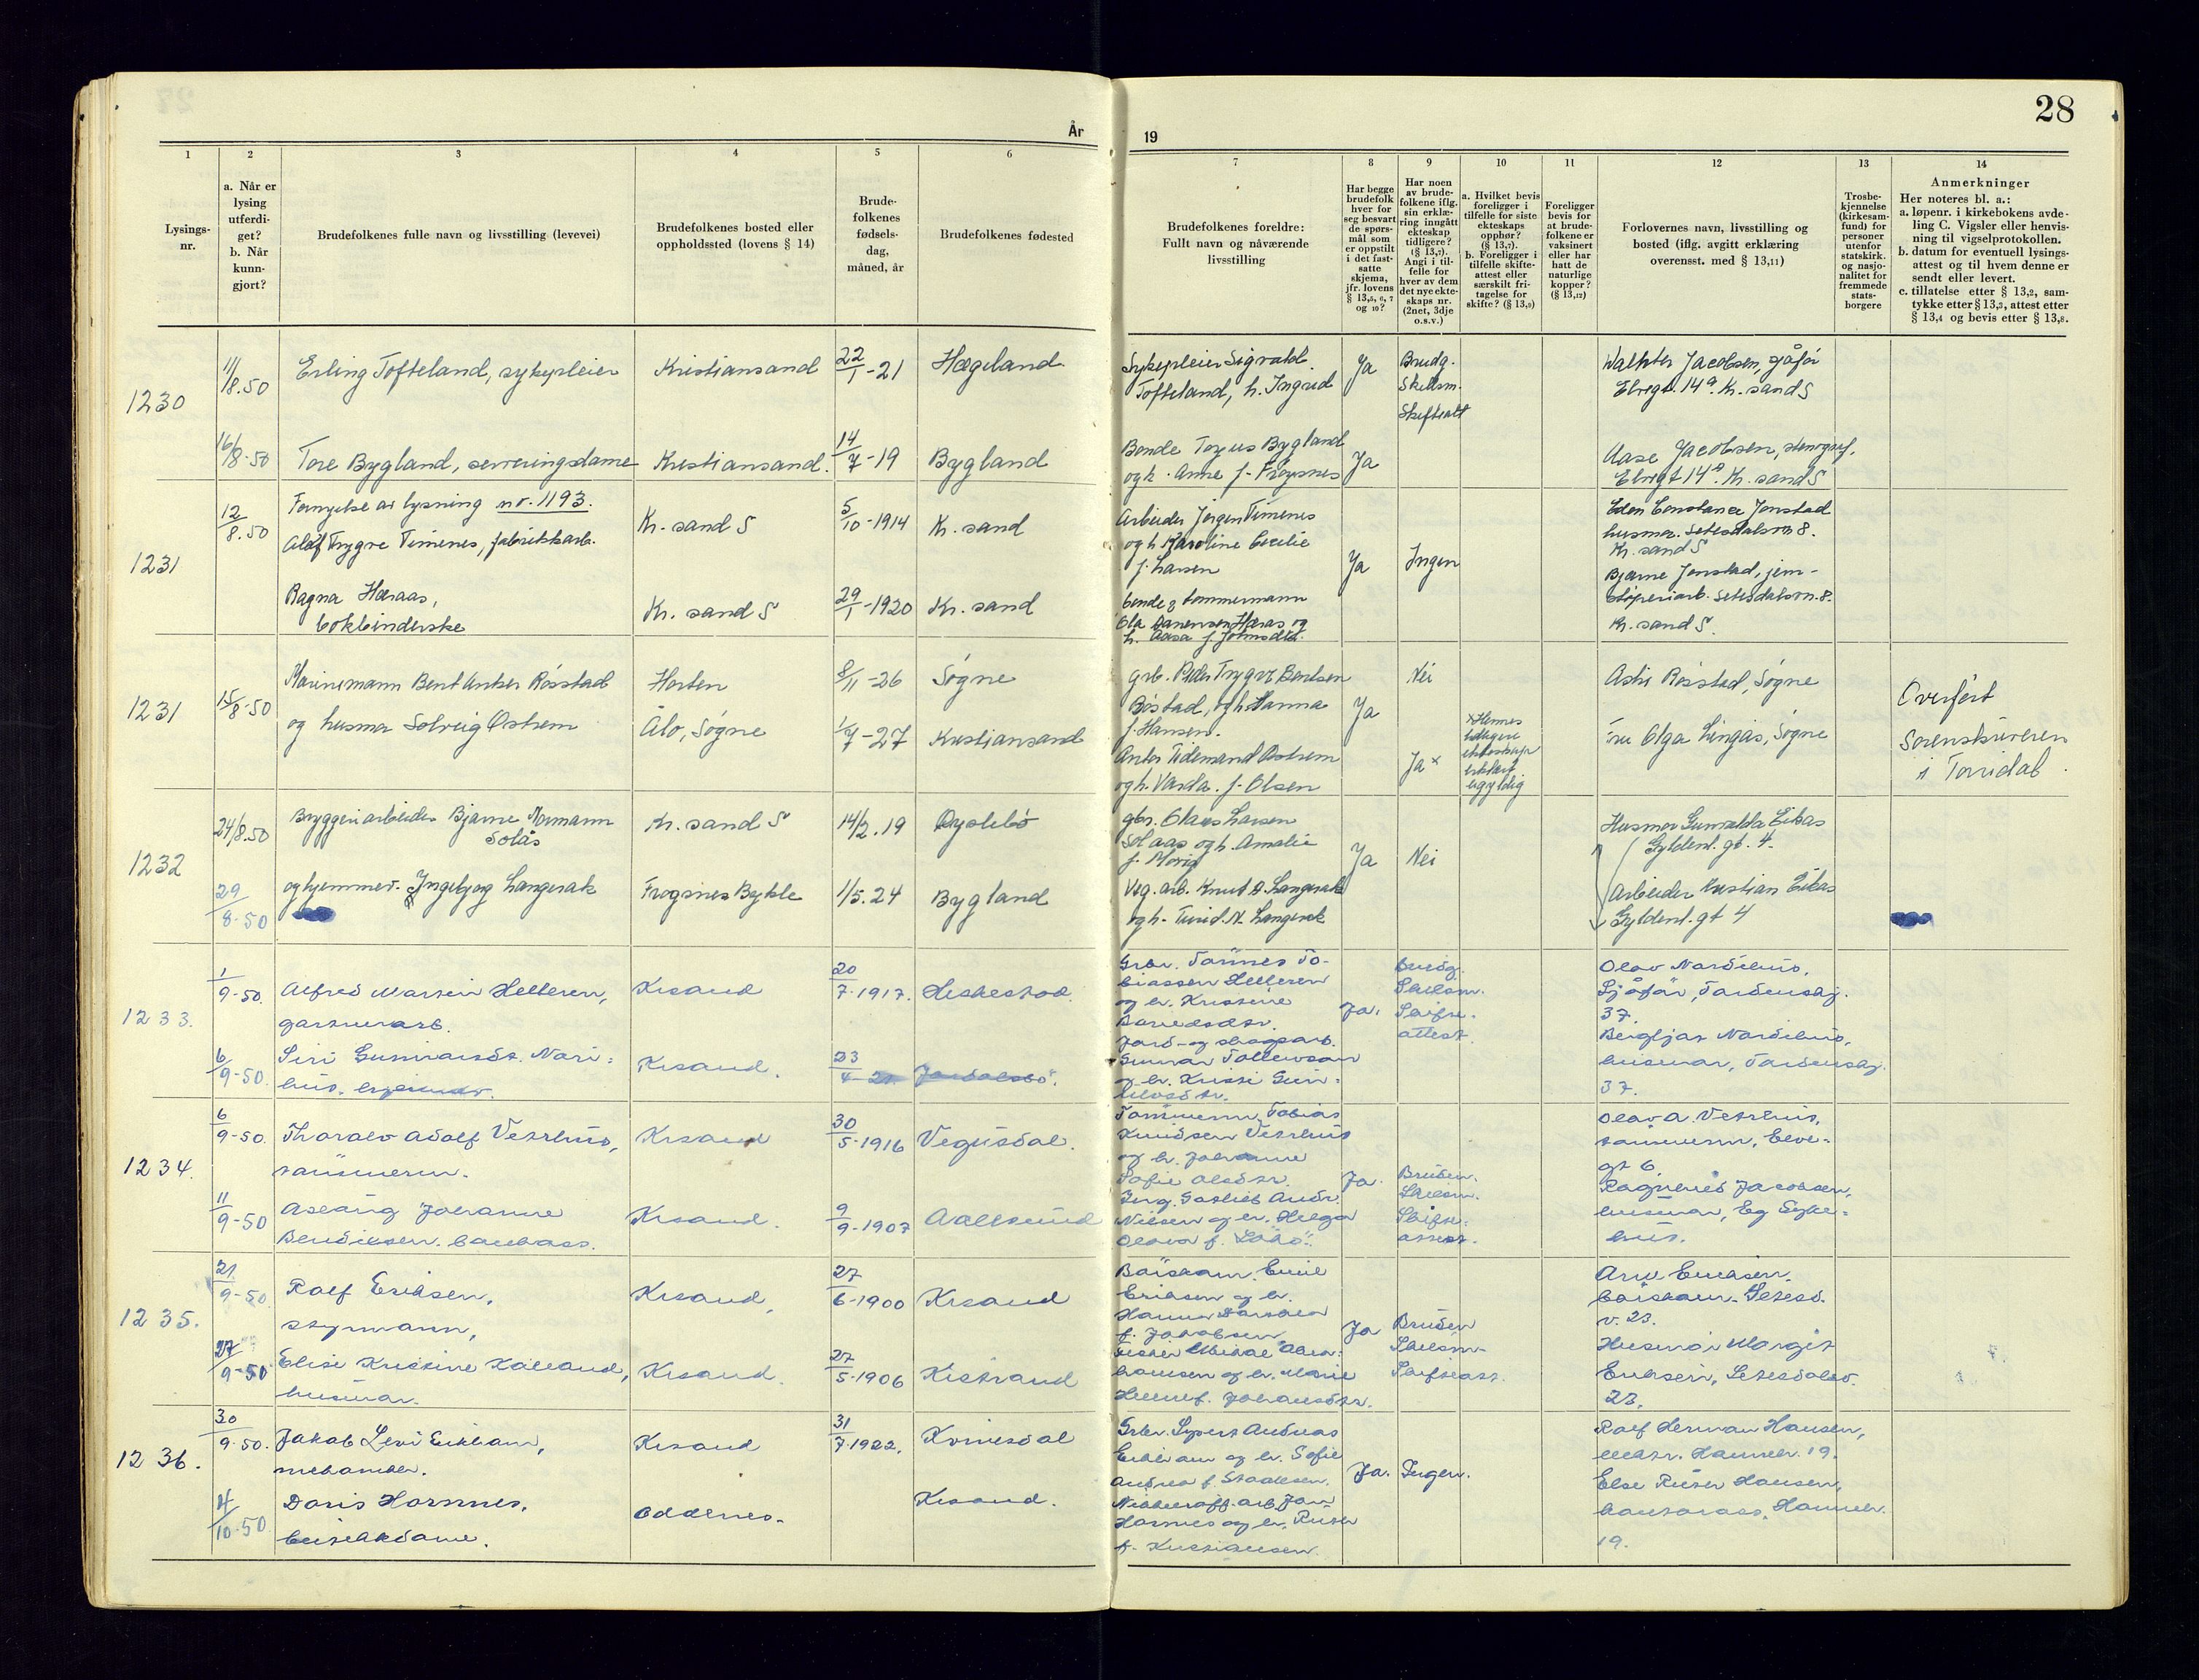 28
År
19
1
2
3
4
5
6
7
8
9
10
11
12
13
14
Lysings-
nr.
a. Når er
lysing
utferdi-
get?
b. Når
kunn-
gjort?
Brudefolkenes fulle navn og livsstilling (levevei)
Brudefolkenes bosted eller
oppholdssted (lovens § 14)
Brude-
folkenes
fødsels-
dag,
måned, år
Brudefolkenes fødested
Brudefolkenes foreldre:
Fullt navn og nåværende
livsstilling
Har begge
brudefolk
hver for
seg besvart
de spørs-
mål som
er oppstilt
i det fast-
satte
skjema,
jfr. lovens
§ 13,5, 6, 7
og 10?
Har noen
av brude-
folkene iflg.
sin erklæ-
ring inngått
ekteskap
tidligere?
(§ 13,7).
Angi i til-
felle for
hver av dem
det nye ekte-
skaps nr.
(2net, 3dje
o.s.v.)
a. Hvilket bevis
foreligger i
tilfelle for siste
ekteskaps
opphør?
(§ 13,7).
b. Foreligger i
tilfelle skifte-
attest eller
særskilt fri-
tagelse for
skifte? (§ 13,9)
Foreligger
bevis for
at brude-
folkene er
vaksinert
eller har
hatt de
naturlige
kopper?
(§ 13,12)
Forlovernes navn, livsstilling og
bosted (iflg. avgitt erklæring
overensst. med § 13,11)
Trosbe-
kjennelse
(kirkesam-
fund) for
personer
utenfor
statskirk.
og nasjo-
nalitet for
fremmede
stats-
borgere
Anmerkninger
Her noteres bl. a.:
a. løpenr. i kirkebokens avde-
ling C. Vigsler eller henvis-
ning til vigselprotokollen.
b. datum for eventuell lysings-
attest og til hvem denne er
sendt eller levert.
c. tillatelse etter § 13,2, sam-
tykke etter § 13,3, attest etter
§ 13,4 og bevis etter § 13,8.
1230
11/8.50
Erling Tofteland, sykepleier
Kristiansand
22/1-21
Hægeland
Sykepleier Sigvald
Tofteland, h. Ingrid
Ja
Brudg.
Skilsm.
Skifteatt
Jacobsen, sjåfør
Elvegt. 14a. Kr. sand S
16/8-50
Tore Bygland, serveringsdame
Kristiansand.
14/7-19
Bygland
Bonde Torjus Bygland
og h. Anne f. Frøysnes
Ja
Aase Jacobsen, stenograf,
Elvegt 14a. Kr. sand S
1231
12/8.50
Fornyelse av lysning nr. 1193.
Alof Trygve Timenes, fabrikkarb.
Kr. sand S
5/10-1914
Kr. sand
Arbeider Jørgen Timenes
og h Karoline Cecilie
f. Larsen
Ja
Ingen
Eden Constance Jonstad
husmor. Setesdalsvn 8.
Kr. sand S
Ragna Høraas,
bokbinderske
Kr. sand S
29/1-1920
Kr. sand
bonde & tømmermann
Ola Aanensen Høraas og
h. Aasa f. Johnsdtr.
Bjarne Jonstad, jern-
støperiarb. Setesdalsvn. 8.
Kr. sand S.
1231
15/8-50
Marinemann Bent Anker Røsstad
Horten
8/11-26
Søgne
grb. Peder Trygve Bentsen
Røstad, og h. Hanna
f. Hansen.
Ja
Nei
Røsstad, Søgne
Overført
Sorenskriveren
i Torridal.
og husmor Solveig Østrem
Ålo, Søgne
1/7-27
Kristiansand
Anker Tidemand Østrem
og h. Varda. f. Olsen
Ja x
x Hennes
tidligere
ekteskap
erklært
ugyldig
Fru Olga Lingås, Søgne
1232
24/8.50
Bryggeriarbeider Bjarne Normann
Solås
Kr. sand S
14/2.19
Øyslebø
gbr. Olaus Larsen
Solaas og h. Amalie
Ja
Nei
Husmor Gunvalda Eikas
Gyldenl. gt. 4.
29/8-50
og hjemmev. Ingebjørg Langerak
Frøysnes Bykle
1/5.24
Bygland
Veg. arb. Knut Langerak
og h. Turid. N. Langerak
Arbeider Kristian Eikas
Gyldenl. gt 4
1233.
1/9-50.
Alfred Martin Helleren,
gartnerarb.
Krsand
20/7-1917.
Heskestad.
Grbr. Tønnes To-
biassen Helleren
og h. Kristine
Ja.
Brudg.
Skilsm.
Skifte-
attest.
Olav Nordhus,
Sjåfør, Tordenskj.
37.
6/9-50.
Siri Gunnarsdt. Nord-
hus, hjemmev.
Krsand.
23/4
Jord- og skogsarb.
Gunnar Tollevsson
Bergljot Nordhus,
husmor, Tordenskj.
37.
1234.
6/9-50.
Thoralv Adolf Vetrhus,
tømmerm.
Krsand
30/5-1916
Vegusdal.
Tømmerm. Tobias
Knudsen Vetrhus
og h. Johanne
Sofie Olsdtr.
Ja.
Bruden.
Skilsm.
Skifte-
attest.
Olav A. Vetrhus,
tømmerm, Elve-
gt 6.
11/9-50
Aslaug Johanne
Bendiksen. bankass.
Krsand.
9/9-1907
Aalesund
Ing. Gotlieb Andr.
Nielsen og h. Helga
Ragnhild Jacobsen,
husmor, Eg Syke-
hus.
1235.
21/9-50
Rolf Eriksen,
styrmann,
Krsand,
27/6-1900
Krsand
Båtsmann. Emil
Eriksen og h.
f. Jakobsen
Ja
Bruden
Skilsm.
Skifteatt.
Arw. Eriksen.
båtsmann. Setesd.
v. 23.
27/9-50
Elise Kristine Kalland,
husmor.
Krsand.
27/5-1906
Kistrand
Husmor Margit
Eriksen, Setesdalsv.
23.
1236.
30/9-50.
Jakob Levi Eikhom,
mekaniker.
Krsand
31/7-1922.
Kvinesdal
Grbr. Sypert Andreas
og h. Sofie
Andrea f. Stoalesen.
Ja.
Ingen.
Rolf Herman Hansen,
elektr. Hannev. 19.
4/10-50
Doris Hornnes.
butikkdame.
Oddernes.
Krsand.
arb. Jon
Hornnes og h. Ruth
f. Kristiansen.
Else Ruth Hansen,
kontorass. Hannev.
19.